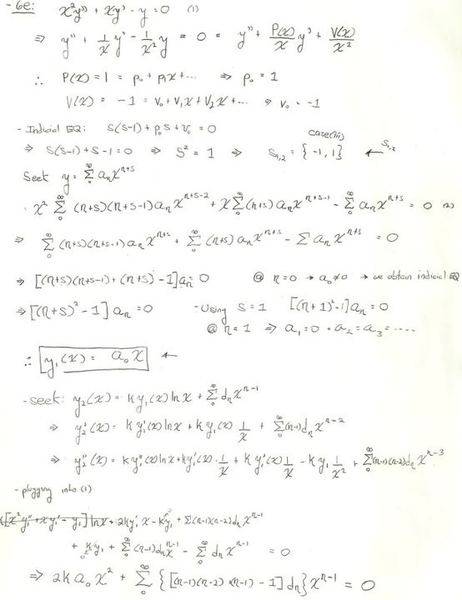 - 6e: x²y'' + xy' - y = 0 (1)
⇒ y'' + 1/x y' - 1/x² y = 0 = y'' + P(x)/x y' + V(x)/x²
∴ P(x) = 1 = p₀ + p₁x + ... ⇒ p₀ = 1
V(x) = -1 = v₀ + v₁x + v₂x + ... ⇒ v₀ = -1
- Indicial EQ: s(s-1) + p₀s + v₀ = 0
⇒ s(s-1) + s - 1 = 0 ⇒ s² = 1 ⇒ s₁,₂ = {-1, 1} ← s₁,₂
Seek y = Σ₀^∞ aₙx^(n+s)
x² Σ₀^∞ (n+s)(n+s-1)aₙx^(n+s-2) + x Σ₀^∞ (n+s)aₙx^(n+s-1) - Σ₀^∞ aₙx^(n+s) = 0 (2)
⇒ Σ₀^∞ (n+s)(n+s-1)aₙx^(n+s) + Σ₀^∞ (n+s)aₙx^(n+s) - Σ aₙx^(n+s) = 0
⇒ [(n+s)(n+s-1) + (n+s) - 1]aₙ = 0 @ n=0 → a₀≠0 → we obtain indicial EQ
⇒ [(n+s)² - 1]aₙ = 0 - Using s = 1 [(n+1)² - 1]aₙ = 0
@ n=1 ⇒ a₁ = 0 = a₂ = a₃ = ....
∴ y₁(x) = a₀x ←
- seek: y₂(x) = k y₁(x) ln x + Σ₀^∞ dₙx^(n-1)
⇒ y₂'(x) = k y₁'(x) ln x + k y₁(x) 1/x + Σ₀^∞ (n-1)dₙx^(n-2)
⇒ y₂''(x) = k y₁''(x) ln x + k y₁'(x) · 1/x + k y₁'(x) 1/x - k y₁ 1/x² + Σ₀^∞ (n-1)(n-2)dₙx^(n-3)
- plugging into (1)
k[x²y₁'' + xy₁' - y₁] ln x + 2k y₁' x - k y₁ + Σ(n-1)(n-2)dₙx^(n-1)
+ k y₁ + Σ₀^∞ (n-1)dₙx^(n-1) - Σ₀^∞ dₙx^(n-1) = 0
⇒ 2k a₀ x² + Σ₀^∞ {[(n-1)(n-2) + (n-1) - 1]dₙ}x^(n-1) = 0